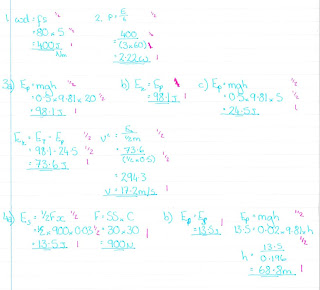 1. wd = Fs ½
= 80 × 5 ½
= 400J 1
2. P = E/t ½
= 400/(3×60) ½
= 2.22W 1
3a) Ep = mgh ½
= 0.5 × 9.81 × 20 ½
= 98.1J 1
b) Ek = Ep 1
= 98.1J 1
c) Ep = mgh ½
= 0.5 × 9.81 × 5 ½
= 24.5J 1
= 98.1 - 24.5 ½
= 73.6J 1
v² = Ek/½m ½
= 73.6/(½ × 0.5) ½
= 294.3
v = 17.2m/s 1
4a) Es = ½Fx ½
= ½ × 900 × 0.03 ½
= 13.5J 1
= 30 × 30
= 900N 1
b)
= 13.5J
Ep = mgh ½
13.5 = 0.02 × 9.81 × h ½
h = 13.5/0.196
= 68.8m 1